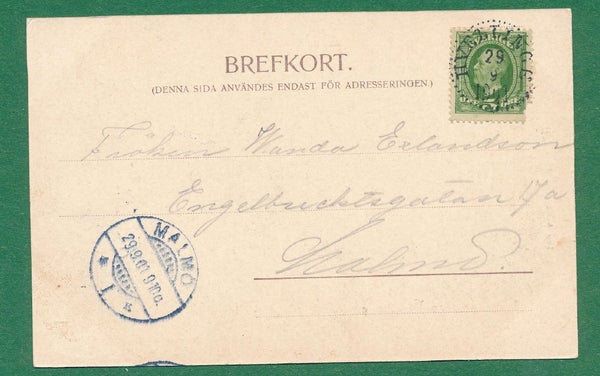 BREFKORT.
(DENNA SIDA ANVÄNDES ENDAST FÖR ADRESSERINGEN.)
29
9
Fröken Wanda Erlandson
Engelbrechtsgatan 17a
Malmö.
MALMÖ
29.9.01 9 10 a.
* 1 *